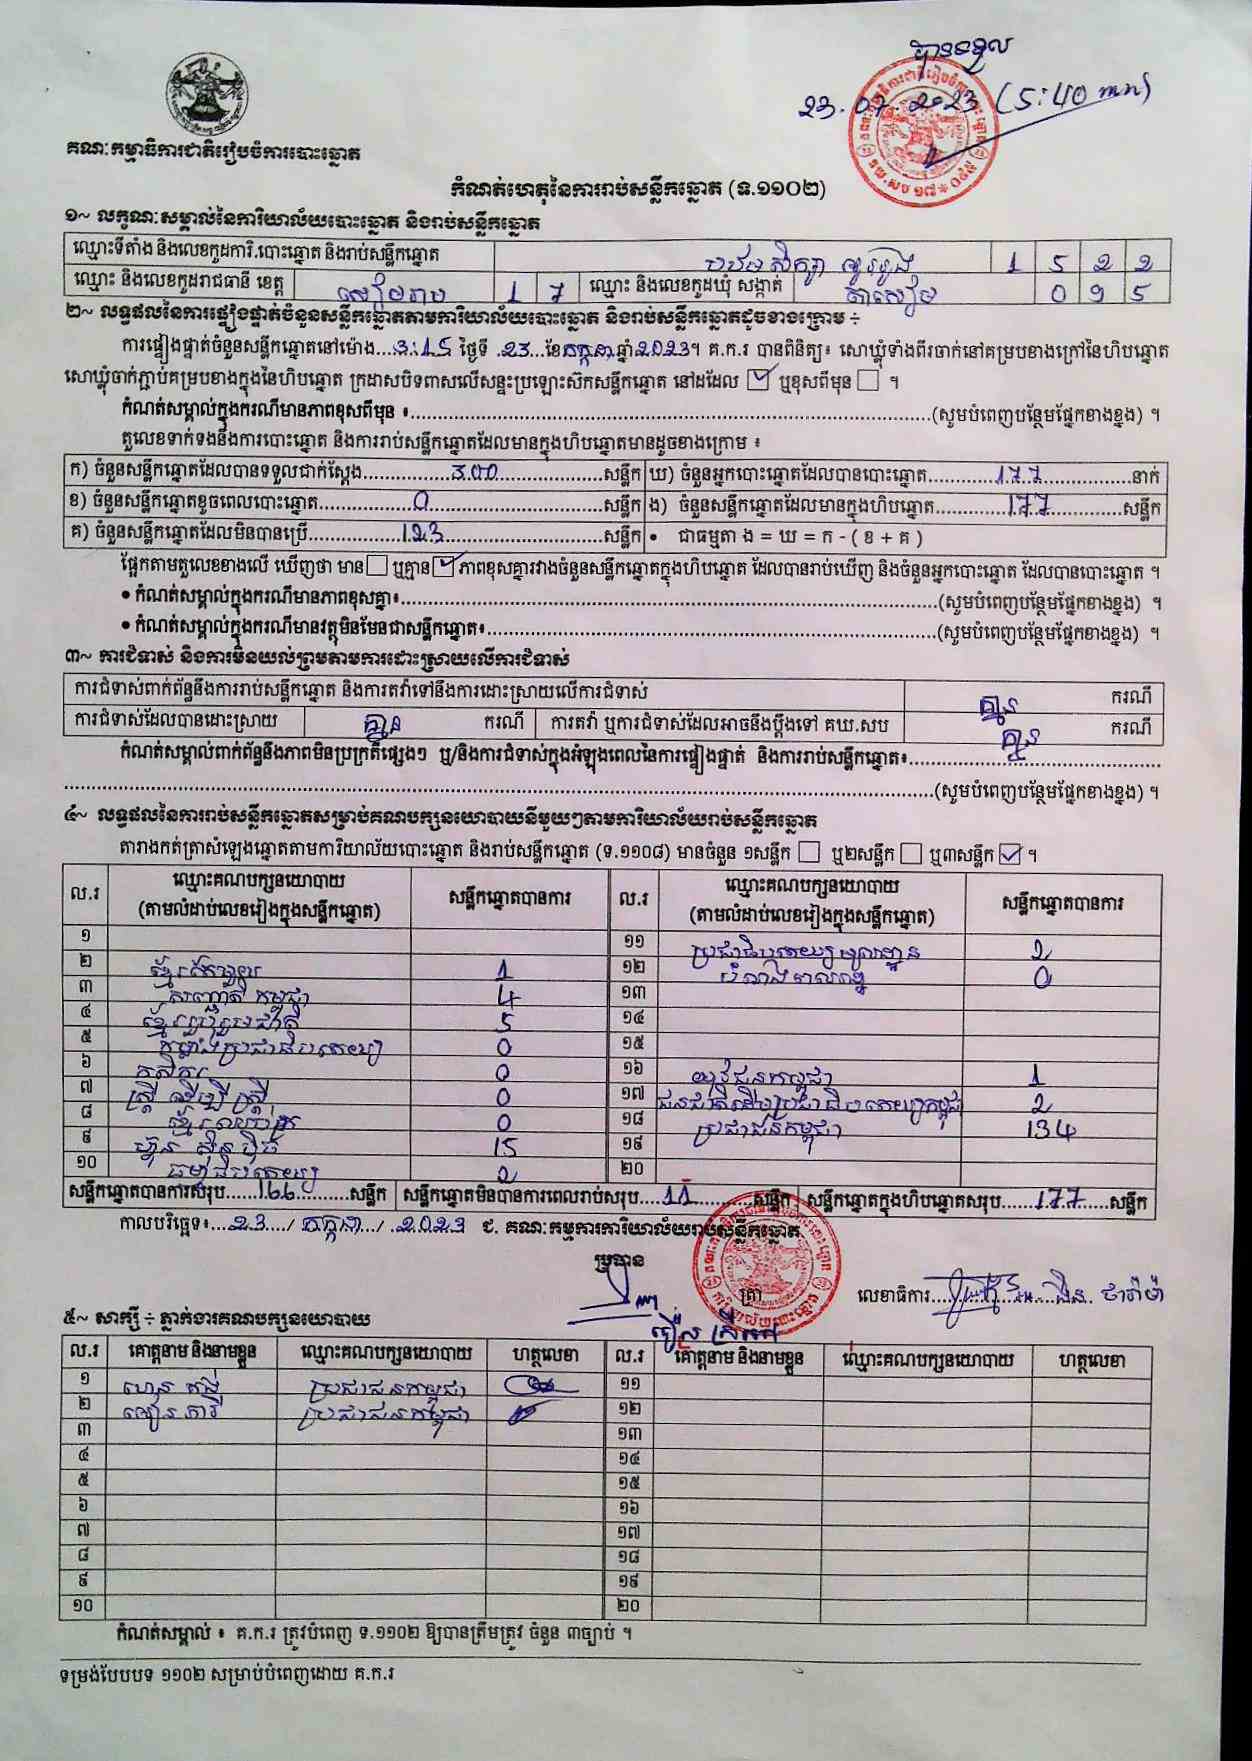 បានទទួល
23.07.2023 (5:40 mn)
គណៈកម្មាធិការជាតិរៀបចំការបោះឆ្នោត
កំណត់ហេតុនៃការរាប់សន្លឹកឆ្នោត (ទ.១១០២)
១~ លក្ខណៈសម្គាល់នៃការិយាល័យបោះឆ្នោត និងរាប់សន្លឹកឆ្នោត
ឈ្មោះទីតាំង និងលេខកូដការិ.បោះឆ្នោត និងរាប់សន្លឹកឆ្នោត 1 5 2 2
ឈ្មោះ និងលេខកូដរាជធានី ខេត្ត សៀមរាប 1 7 ឈ្មោះ និងលេខកូដឃុំ សង្កាត់ តាសៀម 0 9 5
២~ លទ្ធផលនៃការផ្ទៀងផ្ទាត់ចំនួនសន្លឹកឆ្នោតតាមការិយាល័យបោះឆ្នោត និងរាប់សន្លឹកឆ្នោតដូចខាងក្រោម ÷
ការផ្ទៀងផ្ទាត់ចំនួនសន្លឹកឆ្នោតនៅម៉ោង...3:15 ថ្ងៃទី .23...ខែកក្កដាឆ្នាំ2023។ គ.ក.រ បានពិនិត្យ៖ សោឃ្លុំទាំងពីរចាក់នៅគម្របខាងក្រៅនៃហិបឆ្នោត
សោឃ្លុំចាក់ភ្ជាប់គម្របខាងក្នុងនៃហិបឆ្នោត ក្រដាសបិទពាសលើសន្ទះប្រឡោះស៊កសន្លឹកឆ្នោត នៅដដែល ☑ ឬខុសពីមុន ☐ ។
កំណត់សម្គាល់ក្នុងករណីមានភាពខុសពីមុន ៖..........(សូមបំពេញបន្ថែមផ្នែកខាងខ្នង) ។
តួលេខទាក់ទងនឹងការបោះឆ្នោត និងការរាប់សន្លឹកឆ្នោតដែលមានក្នុងហិបឆ្នោតមានដូចខាងក្រោម ៖
ក) ចំនួនសន្លឹកឆ្នោតដែលបានទទួលជាក់ស្តែង..........300..........សន្លឹក ឃ) ចំនួនអ្នកបោះឆ្នោតដែលបានបោះឆ្នោត..........177..........នាក់
ខ) ចំនួនសន្លឹកឆ្នោតខូចពេលបោះឆ្នោត..........0..........សន្លឹក ង) ចំនួនសន្លឹកឆ្នោតដែលមានក្នុងហិបឆ្នោត..........177..........សន្លឹក
គ) ចំនួនសន្លឹកឆ្នោតដែលមិនបានប្រើ..........123..........សន្លឹក • ជាធម្មតា ង = ឃ = ក - ( ខ + គ )
ផ្អែកតាមតួលេខខាងលើ ឃើញថា មាន ☐ ឬគ្មាន ☑ ភាពខុសគ្នារវាងចំនួនសន្លឹកឆ្នោតក្នុងហិបឆ្នោត ដែលបានរាប់ឃើញ និងចំនួនអ្នកបោះឆ្នោត ដែលបានបោះឆ្នោត ។
• កំណត់សម្គាល់ក្នុងករណីមានភាពខុសគ្នា៖..........(សូមបំពេញបន្ថែមផ្នែកខាងខ្នង) ។
• កំណត់សម្គាល់ក្នុងករណីមានវត្ថុមិនមែនជាសន្លឹកឆ្នោត៖..........(សូមបំពេញបន្ថែមផ្នែកខាងខ្នង) ។
៣~ ការជំទាស់ និងការមិនយល់ព្រមតាមការដោះស្រាយលើការជំទាស់
ការជំទាស់ពាក់ព័ន្ធនឹងការរាប់សន្លឹកឆ្នោត និងការតវ៉ាទៅនឹងការដោះស្រាយលើការជំទាស់ គ្មាន ករណី
ការជំទាស់ដែលបានដោះស្រាយ គ្មាន ករណី ការតវ៉ា ឬការជំទាស់ដែលអាចនឹងប្តឹងទៅ គឃ.សប គ្មាន ករណី
កំណត់សម្គាល់ពាក់ព័ន្ធនឹងភាពមិនប្រក្រតីផ្សេងៗ ឬ/និងការជំទាស់ក្នុងអំឡុងពេលនៃការផ្ទៀងផ្ទាត់ និងការរាប់សន្លឹកឆ្នោត៖..........
..........(សូមបំពេញបន្ថែមផ្នែកខាងខ្នង) ។
៤~ លទ្ធផលនៃការរាប់សន្លឹកឆ្នោតសម្រាប់គណបក្សនយោបាយនីមួយៗតាមការិយាល័យរាប់សន្លឹកឆ្នោត
តារាងកត់ត្រាសំឡេងឆ្នោតតាមការិយាល័យបោះឆ្នោត និងរាប់សន្លឹកឆ្នោត (ទ.១១០៨) មានចំនួន ១សន្លឹក ☐ ឬ២សន្លឹក ☐ ឬ៣សន្លឹក ☑ ។
ល.រ ឈ្មោះគណបក្សនយោបាយ (តាមលំដាប់លេខរៀងក្នុងសន្លឹកឆ្នោត) សន្លឹកឆ្នោតបានការ ល.រ ឈ្មោះគណបក្សនយោបាយ (តាមលំដាប់លេខរៀងក្នុងសន្លឹកឆ្នោត) សន្លឹកឆ្នោតបានការ
១ ១១ ប្រជាធិបតេយ្យមូលដ្ឋាន 2
២ 1 ១២ 0
៣ សញ្ជាតិកម្ពុជា 4 ១៣
៤ ខ្មែររួបរួមជាតិ 5 ១៤
៥ កម្លាំងប្រជាធិបតេយ្យ 0 ១៥
៦ កសិករ 0 ១៦ យុវជនកម្ពុជា 1
៧ ស្ត្រីដើម្បីស្ត្រី 0 ១៧ ជនជាតិដើមប្រជាធិបតេយ្យកម្ពុជា 2
៨ 0 ១៨ ប្រជាជនកម្ពុជា 134
៩ ហ៊្វុនស៊ិនប៉ិច 15 ១៩
១០ ធម្មាធិបតេយ្យ 2 ២០
សន្លឹកឆ្នោតបានការសរុប......166..........សន្លឹក សន្លឹកឆ្នោតមិនបានការពេលរាប់សរុប....11..........សន្លឹក សន្លឹកឆ្នោតក្នុងហិបឆ្នោតសរុប......177......សន្លឹក
កាលបរិច្ឆេទ៖...23..../ កក្កដា.../ .2023 ជ. គណៈកម្មការការិយាល័យរាប់សន្លឹកឆ្នោត
ប្រធាន
ត្រា លេខាធិការ
៥~ សាក្សី ÷ ភ្នាក់ងារគណបក្សនយោបាយ
ល.រ គោត្តនាម និងនាមខ្លួន ឈ្មោះគណបក្សនយោបាយ ហត្ថលេខា ល.រ គោត្តនាម និងនាមខ្លួន ឈ្មោះគណបក្សនយោបាយ ហត្ថលេខា
១ ប្រជាជនកម្ពុជា ១១
២ ប្រជាជនកម្ពុជា ១២
៣ ១៣
៤ ១៤
៥ ១៥
៦ ១៦
៧ ១៧
៨ ១៨
៩ ១៩
១០ ២០
កំណត់សម្គាល់ ៖ គ.ក.រ ត្រូវបំពេញ ទ.១១០២ ឱ្យបានត្រឹមត្រូវ ចំនួន ៣ច្បាប់ ។
ទម្រង់បែបបទ ១១០២ សម្រាប់បំពេញដោយ គ.ក.រ